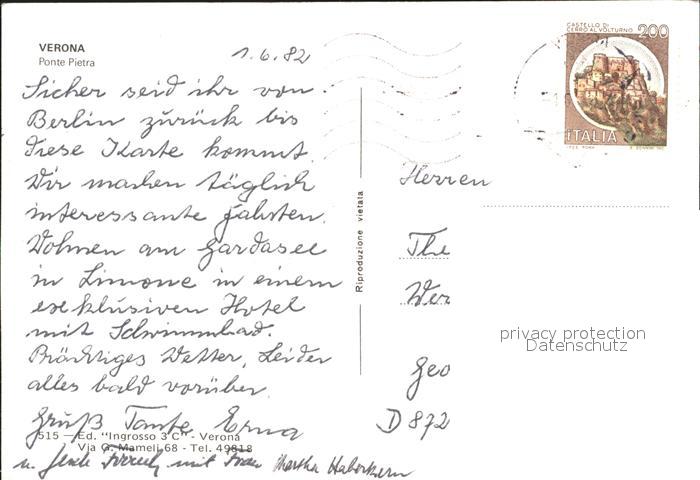 VERONA
Ponte Pietra
1.6.82
Sicher seid ihr von
Berlin zurück bis
diese Karte kommt.
Wir machen täglich
interessante Fahrten.
Wohnen am Gardasee
in Limone in einem
exklusiven Hotel
mit Schwimmbad.
Prächtiges Wetter, Leider
alles bald vorüber.
Gruß Tante Erna
515 — Ed. "Ingrosso 3 C" - Verona
Via G. Mameli 68 - Tel. 49818
u. mit Frau Martha Haberkern
Riproduzione vietata
CASTELLO DI
CERRO AL VOLTURNO
200
ITALIA
Herren
The
Wer
Geo
D 872
privacy protection
Datenschutz